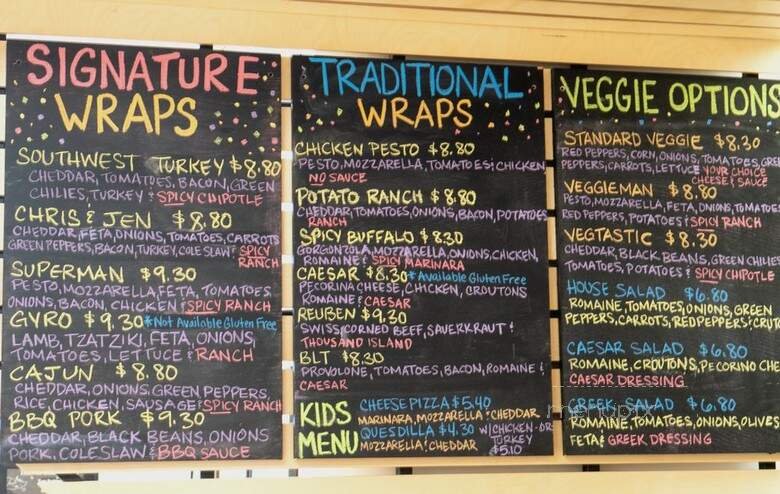 SIGNATURE
WRAPS
SOUTHWEST TURKEY $8.80
CHEDDAR, TOMATOES, BACON, GREEN
CHILIES, TURKEY & SPICY CHIPOTLE
CHRIS & JEN $8.80
CHEDDAR, FETA, ONIONS, TOMATOES, CARROTS
GREEN PEPPERS, BACON, TURKEY, COLE SLAW & SPICY
RANCH
SUPERMAN $9.30
PESTO, MOZZARELLA, FETA, TOMATOES
ONIONS, BACON, CHICKEN & SPICY RANCH
GYRO $9.30 *Not Available Gluten Free
LAMB, TZATZIKI, FETA, ONIONS,
TOMATOES, LETTUCE & RANCH
CAJUN $8.80
CHEDDAR, ONIONS, GREEN PEPPERS,
RICE, CHICKEN, SAUSAGE & SPICY RANCH
BBQ PORK $9.30
CHEDDAR, BLACK BEANS, ONIONS
PORK, COLESLAW & BBQ SAUCE
TRADITIONAL
WRAPS
CHICKEN PESTO $8.80
PESTO, MOZZARELLA, TOMATOES & CHICKEN
NO SAUCE
POTATO RANCH $8.80
CHEDDAR, TOMATOES, ONIONS, BACON, POTATOES
RANCH
SPICY BUFFALO $8.30
GORGONZOLA, MOZZARELLA, ONIONS, CHICKEN,
ROMAINE & SPICY MARINARA
CAESAR $8.30 *Available Gluten Free
PECORINA CHEESE, CHICKEN, CROUTONS
ROMAINE & CAESAR
REUBEN $9.30
SWISS, CORNED BEEF, SAUERKRAUT &
THOUSAND ISLAND
BLT $8.30
PROVOLONE, TOMATOES, BACON, ROMAINE &
CAESAR
KIDS
MENU
CHEESE PIZZA $5.40
MARINARA, MOZZARELLA & CHEDDAR
QUESDILLA $4.30 W/CHICKEN OR
MOZZARELLA & CHEDDAR TURKEY
$5.10
VEGGIE OPTIONS
STANDARD VEGGIE $8.30
RED PEPPERS, CORN, ONIONS, TOMATOES, GRE
PEPPERS, CARROTS, LETTUCE YOUR CHOICE
CHEESE & SAUCE
VEGGIEMAN $8.80
PESTO, MOZZARELLA, FETA, ONIONS, TOMATOES
RED PEPPERS, POTATOES & SPICY RANCH
VEGTASTIC $8.30
CHEDDAR, BLACK BEANS, GREEN CHILIES
TOMATOES, POTATOES & SPICY CHIPOTLE
HOUSE SALAD $6.80
ROMAINE, TOMATOES, ONIONS, GREEN
PEPPERS, CARROTS, RED PEPPERS & CROUT
CAESAR SALAD $6.80
ROMAINE, CROUTONS, PECORINO CHE
CAESAR DRESSING
GREEK SALAD $6.80
ROMAINE, TOMATOES, ONIONS, OLIVES
FETA & GREEK DRESSING